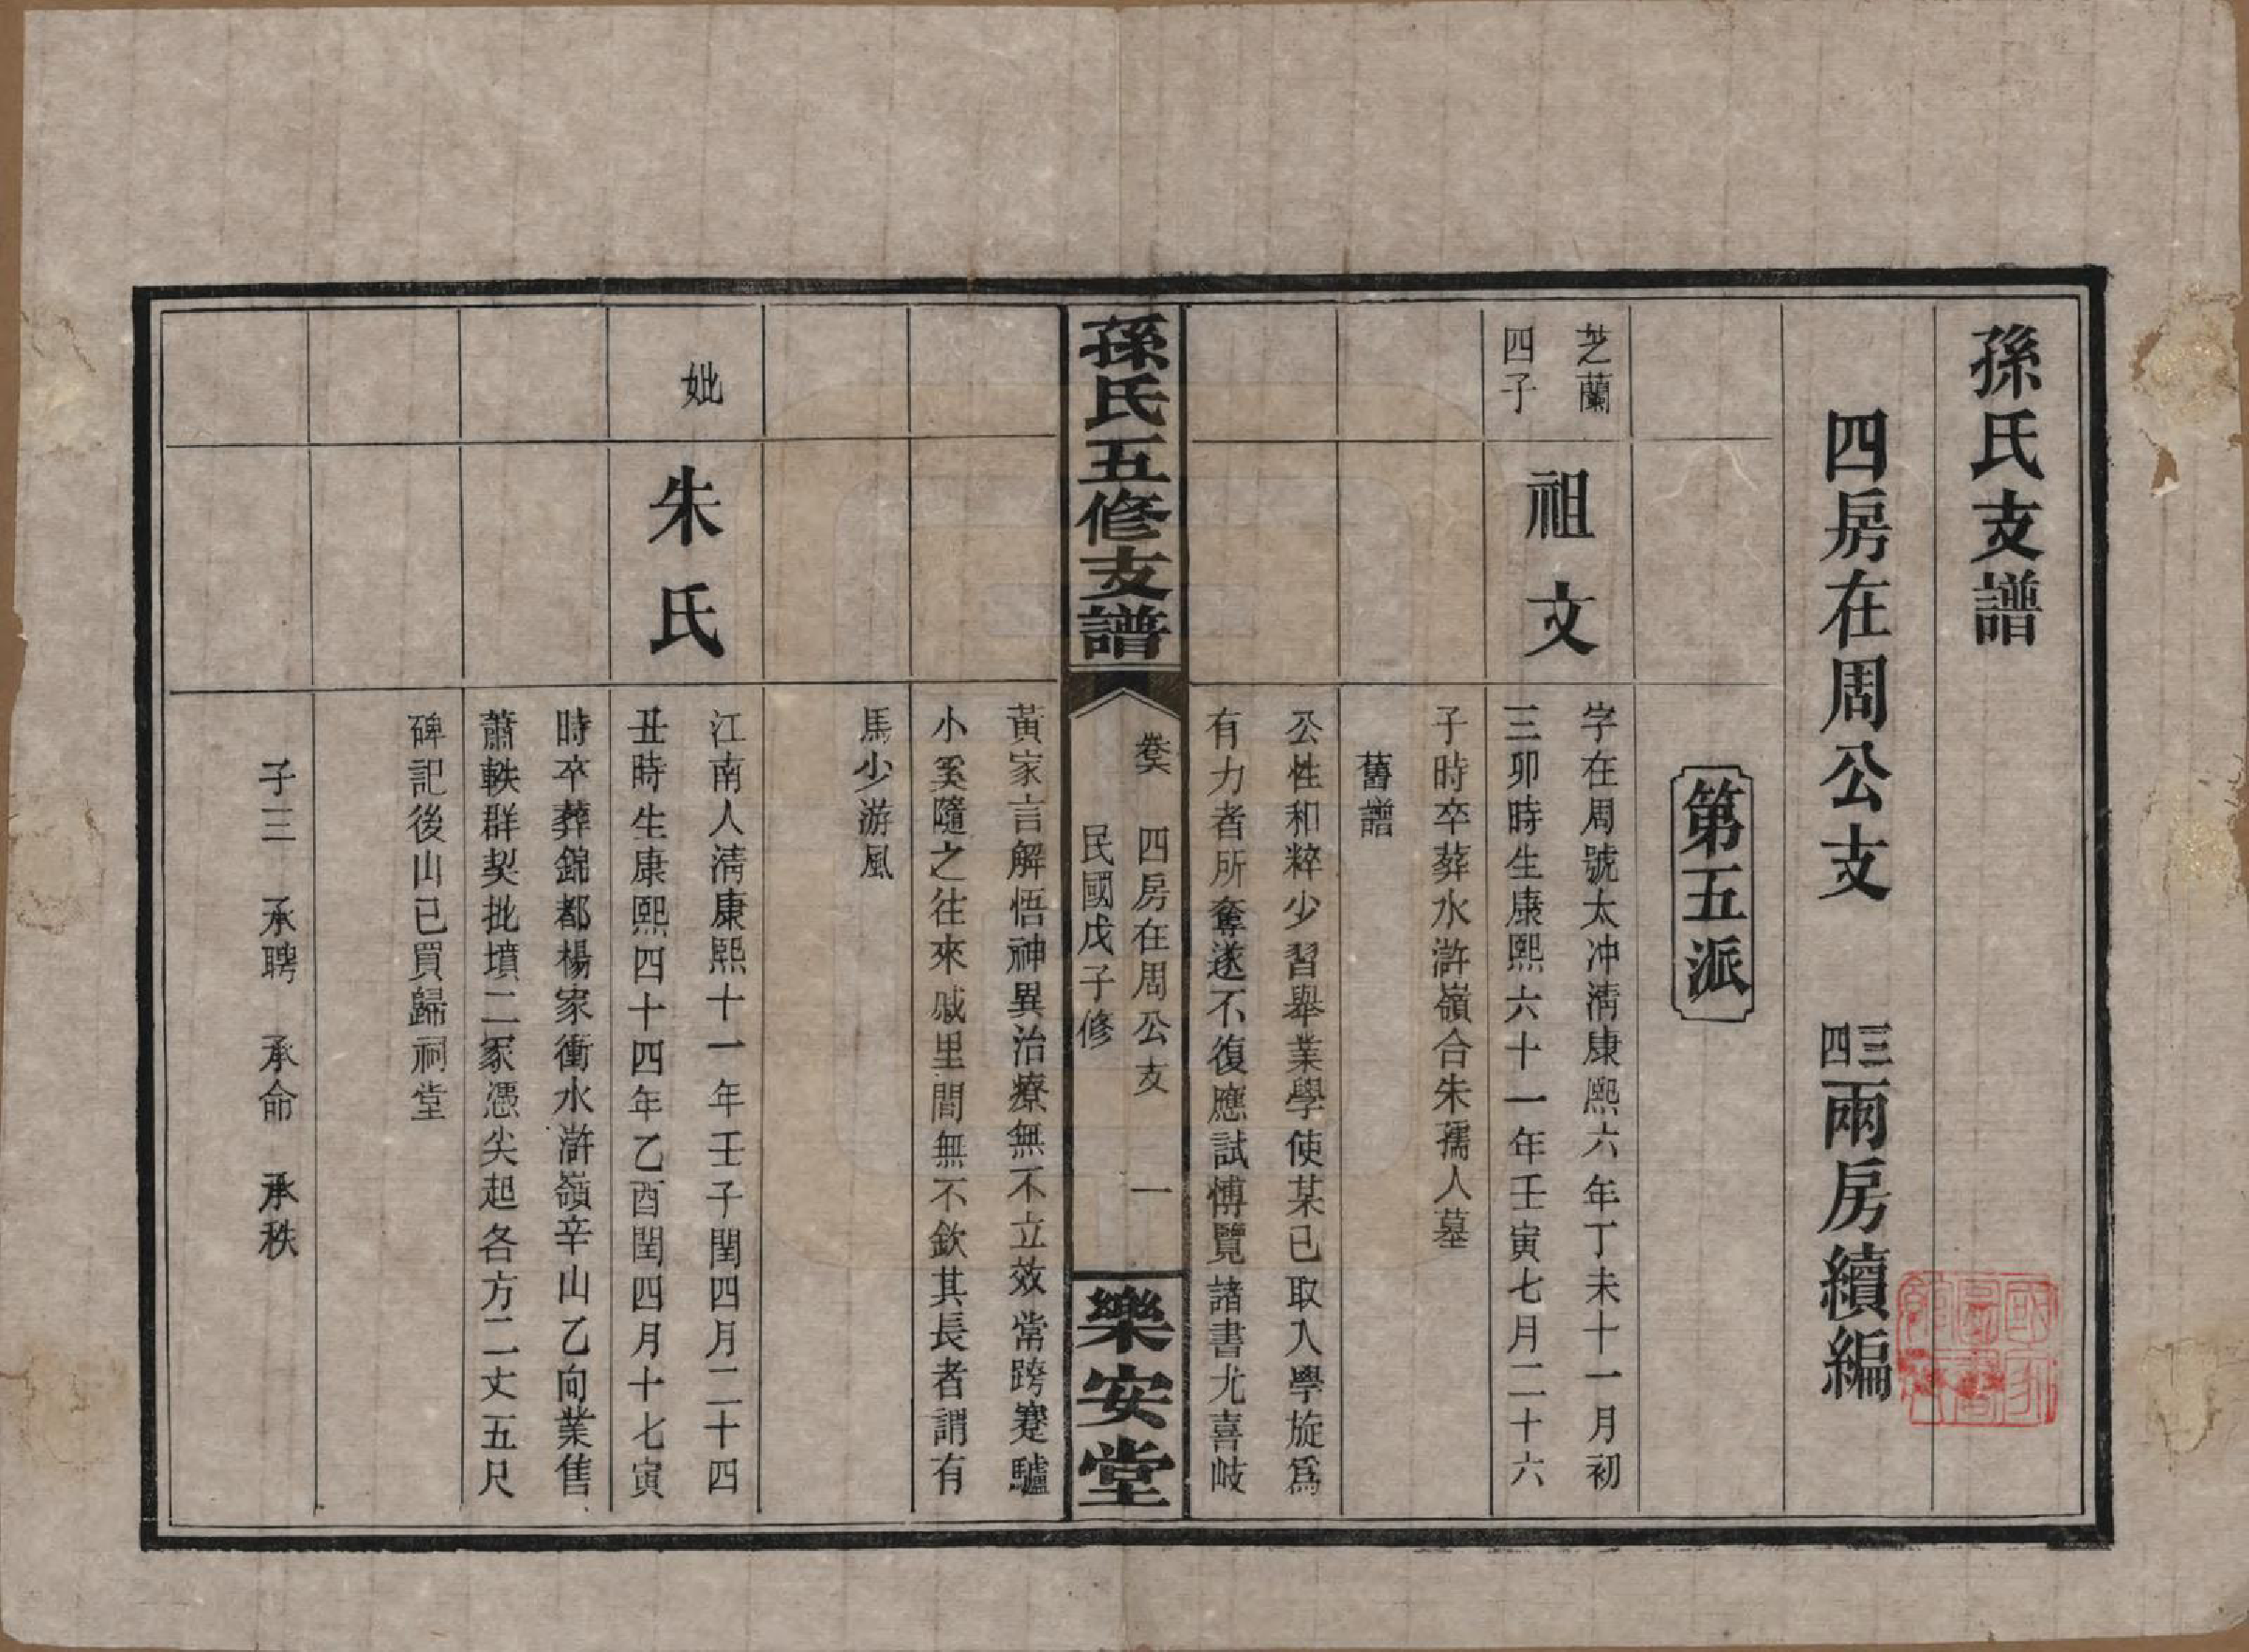 孫氏支譜
四房在周公支　三四兩房續編
第五派
芝蘭
四子
祖文
字在周號太冲淸康熙六年丁未十一月初
三卯時生康熙六十一年壬寅七月二十六
子時卒葬水滸嶺合朱孺人墓
舊譜
公性和粹少習舉業學使某已取入學旋爲
有力者所奪遂不復應試愽覽諸書尤喜岐
孫氏五修支譜
卷六　四房在周公支　一
民國戊子修
樂安堂
黃家言解悟神異治療無不立效常跨蹇驢
小奚隨之往來戚里間無不欽其長者謂有
馬少游風
妣
朱氏
江南人淸康熙十一年壬子閏四月二十四
丑時生康熙四十四年乙酉閏四月十七寅
時卒葬錦都楊家衝水滸嶺辛山乙向業售
蕭軼群契批墳二冢憑尖起各方二丈五尺
碑記後山已買歸祠堂
子三　承聘　承命　承秩